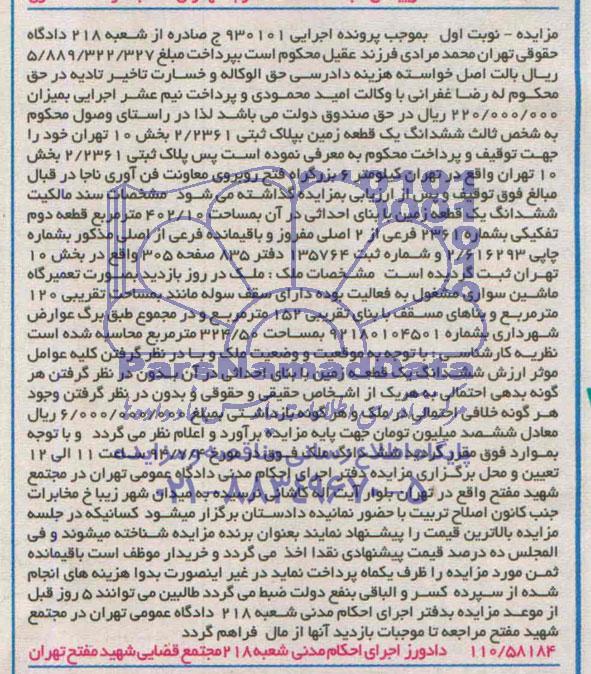 مزایده - نوبت اول بموجب پرونده اجرایی ۹۳۰۱۰۱ ج صادره از شعبه ۲۱۸ دادگاه
حقوقی تهران محمد مرادی فرزند عقیل محکوم است بپرداخت مبلغ ۵/۸۸۹/۳۲۲/۳۲۷
ریال بالت اصل خواسته هزینه دادرسی حق الوکاله و خسارت تاخیر تادیه در حق
محکوم له رضا غفرانی با وکالت امید محمودی و پرداخت نیم عشر اجرایی بمیزان
۲۲۰/۰۰۰/۰۰۰ ریال در حق صندوق دولت می باشد لذا در راستای وصول محکوم
به شخص ثالث ششدانگ یک قطعه زمین بپلاک ثبتی ۲/۲۳۶۱ بخش ۱۰ تهران خود را
جهت توقیف و پرداخت محکوم به معرفی نموده است پس پلاک ثبتی ۲/۲۳۶۱ بخش
۱۰ تهران واقع در تهران کیلومتر ۶ بزرگراه فتح روبروی معاونت فن آوری ناجا در قبال
مبالغ فوق توقیف و پس از ارزیابی بمزایده گذاشته می شود مشخصات سند مالکیت
ششدانگ یک قطعه زمین با بنای احداثی در آن بمساحت ۴۰۲/۱۰ مترمربع قطعه دوم
تفکیکی بشماره ۲۳۶۱ فرعی از ۲ اصلی مفروز و باقیمانده فرعی از اصلی مذکور بشماره
چاپی ۲/۶۱۶۲۹۳ و شماره ثبت ۱۳۵۷۶۴ دفتر ۸۳۵ صفحه ۳۰۵ واقع در بخش ۱۰
تهران ثبت گردیده است مشخصات ملک : ملک در روز بازدید بصورت تعمیرگاه
ماشین سواری مشغول به فعالیت بوده دارای سقف سوله مانند بمساحت تقریبی ۱۲۰
مترمربع و بناهای مسقف با بنای تقریبی ۱۵۲ مترمربع و در مجموع طبق برگ عوارض
شهرداری بشماره ۹۲۱۸۰۱۰۴۵۰۱ بمساحت ۳۲۴/۵۰ مترمربع محاسبه شده است
نظریه کارشناسی: با توجه به موقعیت و وضعیت ملک و با در نظر گرفتن کلیه عوامل
موثر ارزش ششدانگ یک قطعه زمین با بنای احداثی در آن بدون در نظر گرفتن هر
گونه بدهی احتمالی به هریک از اشخاص حقیقی و حقوقی و بدون در نظر گرفتن وجود
هر گونه خلافی احتمالی در ملک و هر گونه بازداشتی بمبلغ ۶/۰۰۰/۰۰۰/۰۰۰ ریال
معادل ششصد میلیون تومان جهت پایه مزایده برآورد و اعلام نظر می گردد و با توجه
بموارد فوق مقرر گردید ششدانگ ملک فوق در مورخ ۹۴/۷/۹ ساعت ۱۱ الی ۱۲
تعیین و محل برگزاری مزایده دفتر اجرای احکام مدنی دادگاه عمومی تهران در مجتمع
شهید مفتح واقع در تهران بلوار آیت اله کاشانی نرسیده به میدان شهر زیبا خ مخابرات
جنب کانون اصلاح تربیت با حضور نمانیده دادستان برگزار میشود کسانیکه در جلسه
مزایده بالاترین قیمت را پیشنهاد نمایند بعنوان برنده مزایده شناخته میشوند و فی
المجلس ده درصد قیمت پیشنهادی نقدا اخذ می گردد و خریدار موظف است باقیمانده
ثمن مورد مزایده را ظرف یکماه پرداخت نماید در غیر اینصورت بدوا هزینه های انجام
شده از سپرده کسر و الباقی بنفع دولت ضبط می گردد طالبین می توانند ۵ روز قبل
از موعد مزایده بدفتر اجرای احکام مدنی شعبه ۲۱۸ دادگاه عمومی تهران در مجتمع
شهید مفتح مراجعه تا موجبات بازدید آنها از مال فراهم گردد
۱۱۰/۵۸۱۸۴ دادورز اجرای احکام مدنی شعبه ۲۱۸ مجتمع قضایی شهید مفتح تهران
پایگاه اطلاع رسانی مناقصه و مزایده
۰۲۱-۸۸۳۴۹۶۷۰-۵